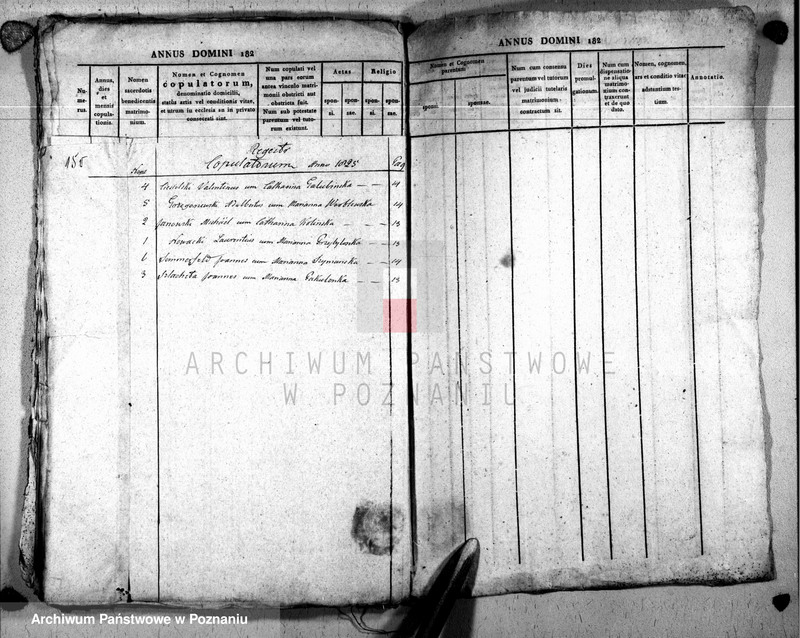 ANNUS DOMINI 182
Nu-
me-
rus.
Annus,
dies
et
mensis
copula-
tionis.
Nomen
sacerdotis
benedicentis
matrimo-
nium.
Nomen et Cognomen
copulatorum,
denominatio domicilii,
status artis vel conditionis vitae,
et utrum in ecclesia an in privato
consecrati sint.
Num copulati vel
una pars eorum
antea vinculo matri-
monii obstricti aut
obstricta fuit.
Num sub potestate
parentum vel tuto-
rum existunt.
Aetas
spon-
si.
spon-
sae.
Religio
spon-
si.
spon-
sae.
Regestr
Copulatorum Anno 1825
Nrus
Pag
4 Valentinus cum Catharina — — 14
5 cum Marianna 14
2 Janowski Michael cum Catharina — — 13
1 Nowacki Laurentius cum Marianna Przybylska — 13
6 Sommerfeld Joannes cum Marianna Szymanska — 14
3 Szlachta Joannes cum Marianna — 13
ANNUS DOMINI 182
Nomen et Cognomen
parentum
sponsi.
sponsae.
Num cum consensu
parentum vel tutorum
vel judicii tutelaris
matrimonium
contractum sit.
Dies
promul-
gationum.
Num cum
dispensatio-
ne aliqua
matrimo-
nium con-
traxerunt
et de quo
dato.
Nomen, cognomen,
ars et conditio vitae
adstantium tes-
tium.
Annotatio.
ARCHIWUM PAŃSTWOWE
W POZNANIU
Archiwum Państwowe w Poznaniu